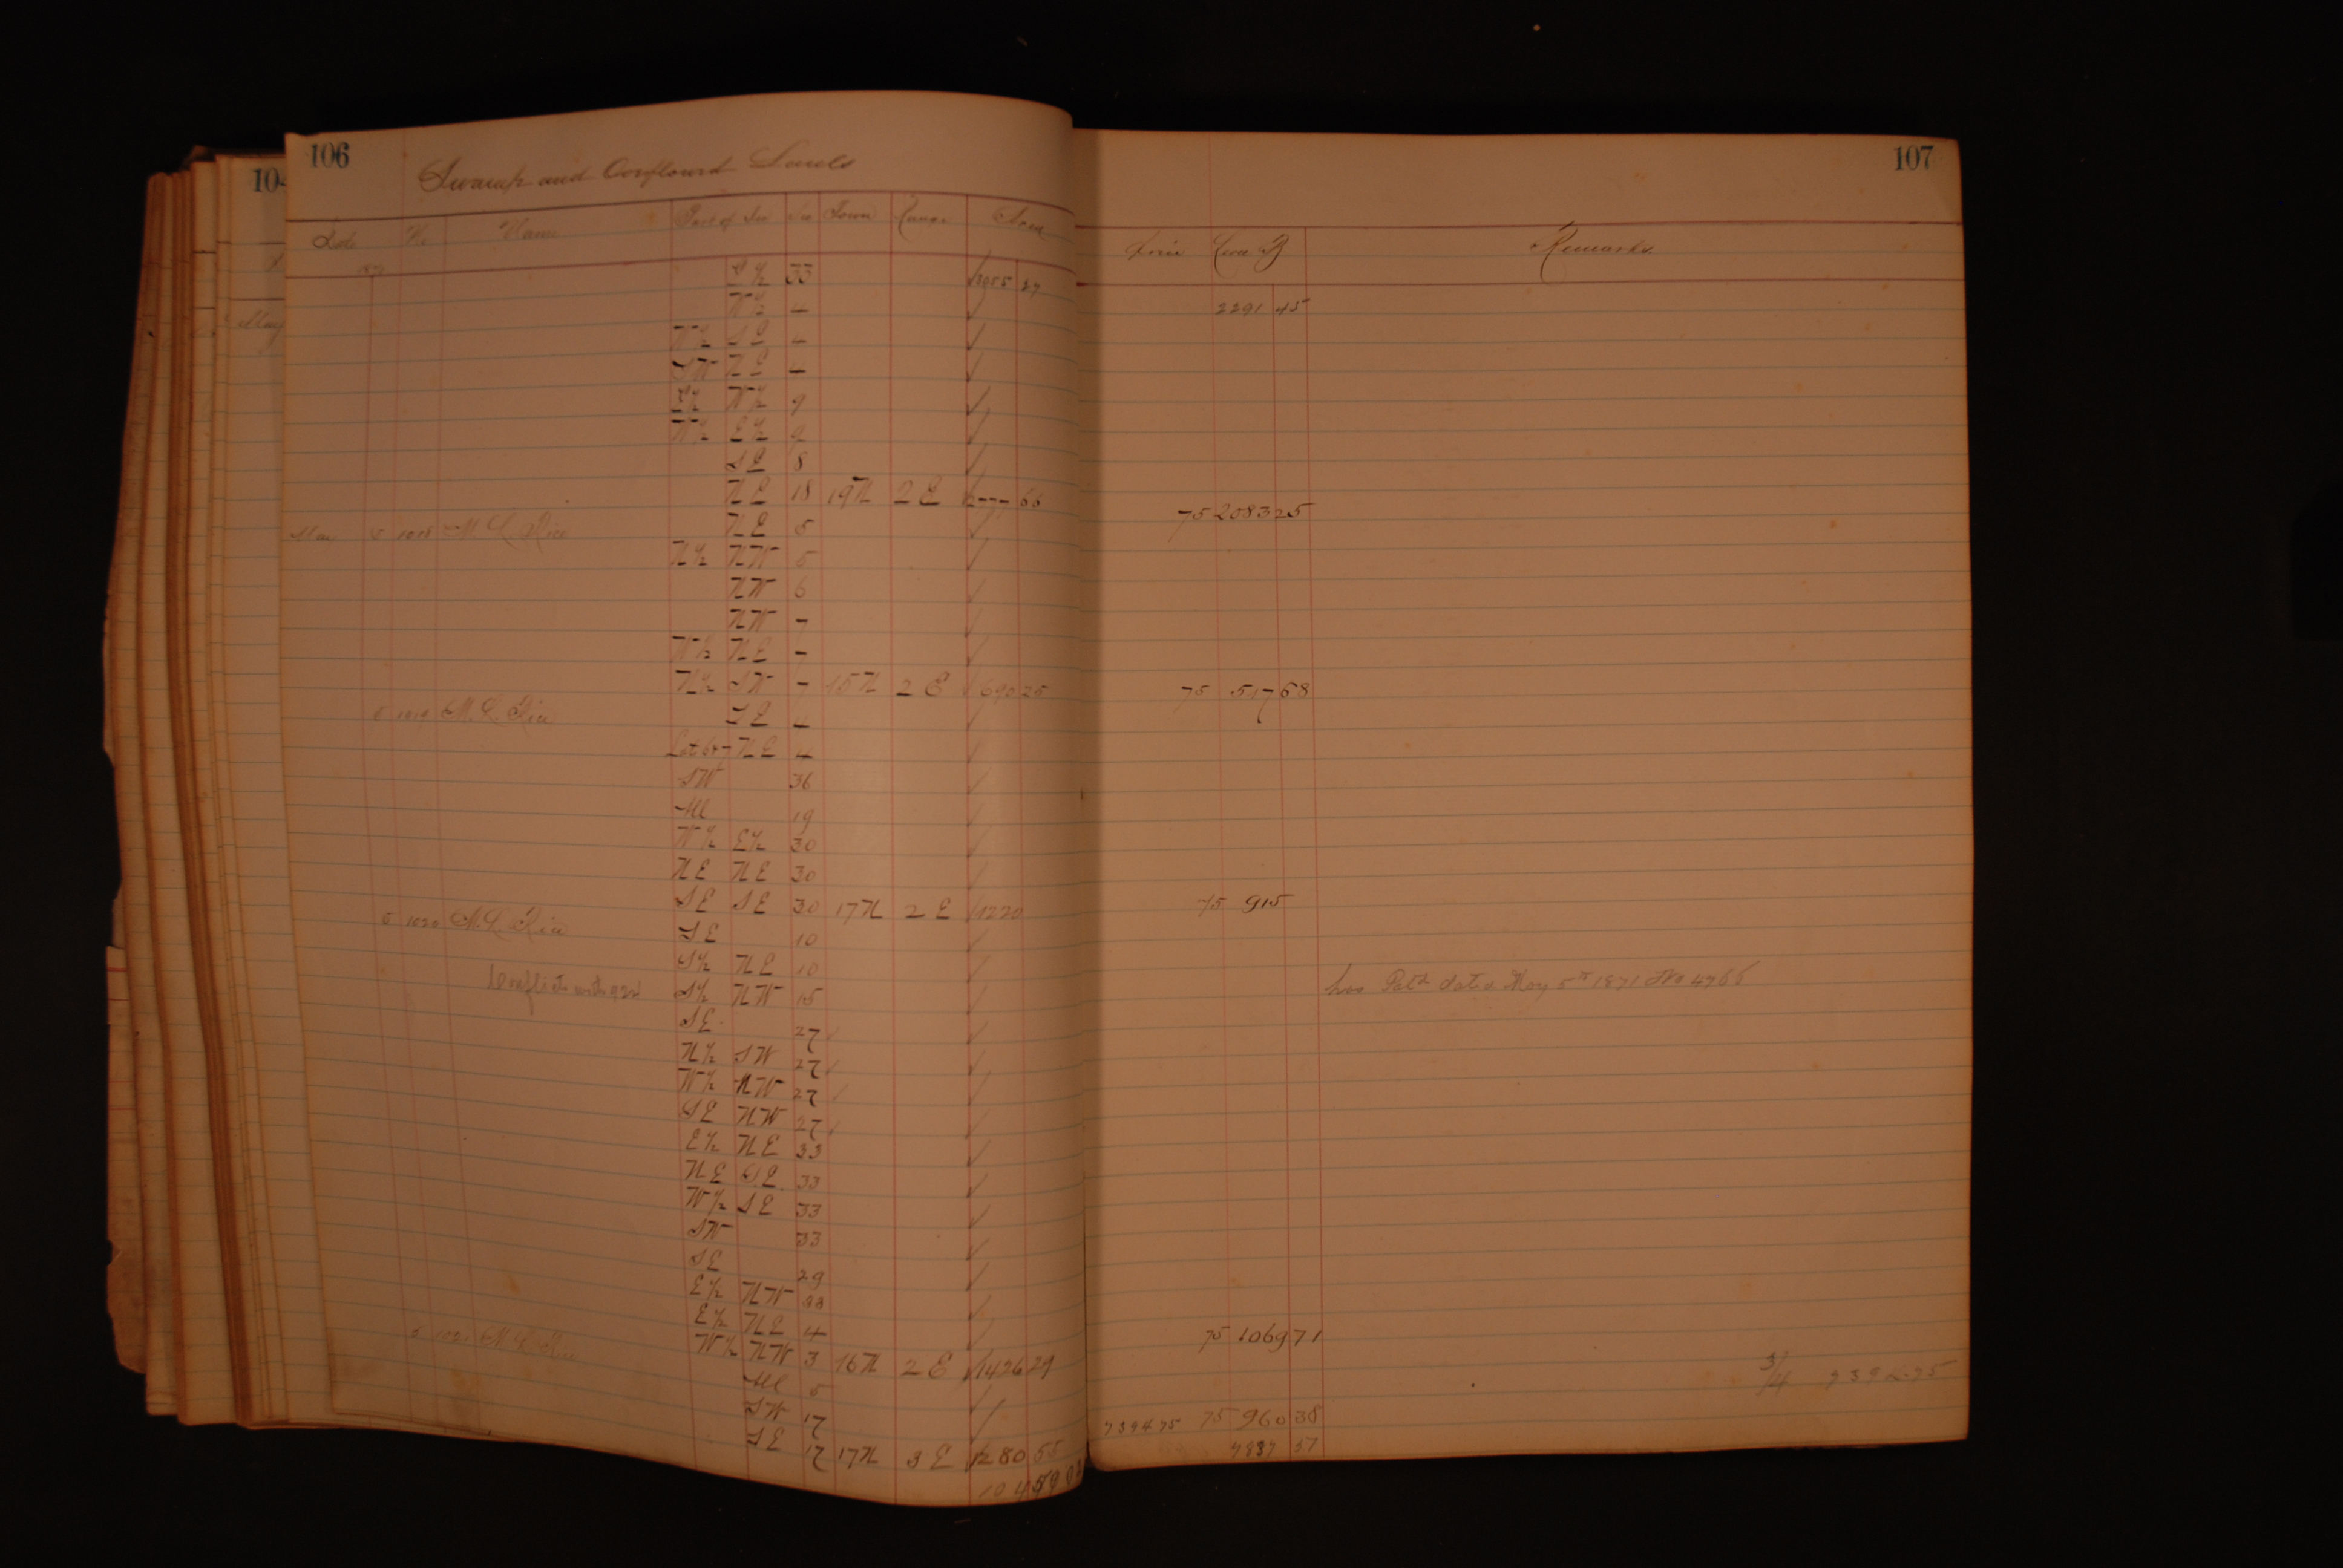 106
Swamp and Overflowed Lands
Date No Name Part of Sec Sec Town Range Area
S½ 33 3055 27
W½ 4
W½ SE 4
SW NE 4
E½ W½ 9
W½ E½ 9
SE 8
NE 18 19N 2E 2777 66
May 5 1018 M. L. Rice NE 5
N½ NW 5
NW 6
NW 7
W½ NE 7
N½ SW 7 15N 2E 690 25
5 1019 M. L. Rice SE 4
Lot 6 & 7 NE 4
SW 36
All 19
W½ E½ 30
NE NE 30
SE SE 30 17N 2E 1220
5 1020 M. L. Rice SE 10
S½ NE 10
Conflicts with 922 S½ NW 15
SE 27
N½ SW 27
W½ NW 27
SE NW 27
E½ NE 33
NE SE 33
W½ SE 33
SW 33
SE 29
E½ NW 33
E½ NE 4
W½ NW 3 16N 2E 1426 29
5 1021 M. L. Rice All 5
SW 17
SE 17 17N 3E 1280 55
104
107
Price Remarks
2291 45
75 2083 25
75 517 68
75 915
has Patd dated May 5th 1871 No 4765
75 1069 71
3/4
7394 75 75 960 38
7837 57